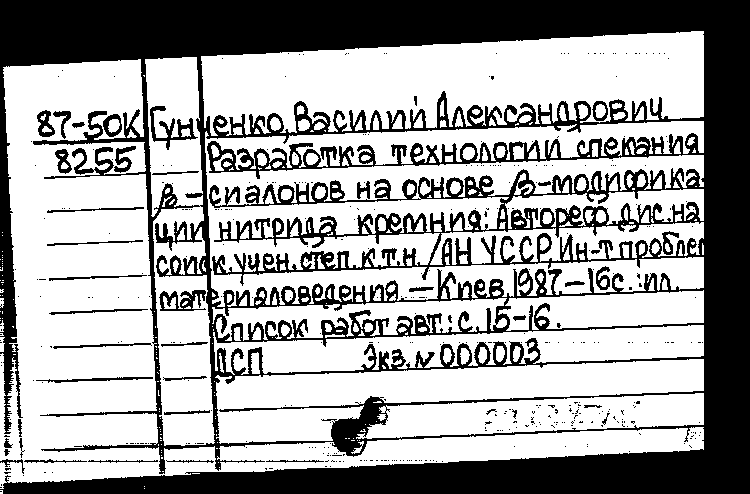 87-50К Гунченко, Василий Александрович.
8255 Разработка технологии спекания
β-сиалонов на основе β-модифика-
ции нитрида кремния: Автореф. дис. на
соиск. учен. степ. к.т.н. /АН УССР, Ин-т проблем
материаловедения. — Киев, 1987. — 16с.: ил.
Список работ авт.: с. 15-16.
ДСП. Экз. № 000003.